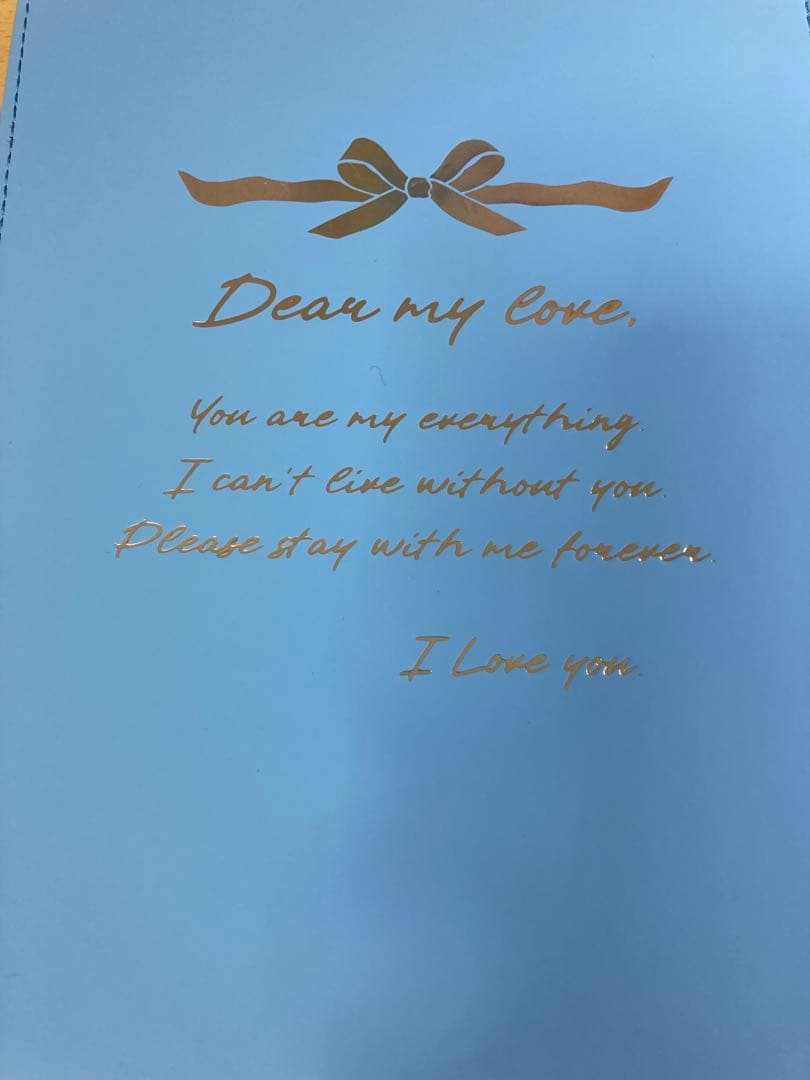 Dear my love,
You are my everything.
I can't live without you.
Please stay with me forever.
I Love you.